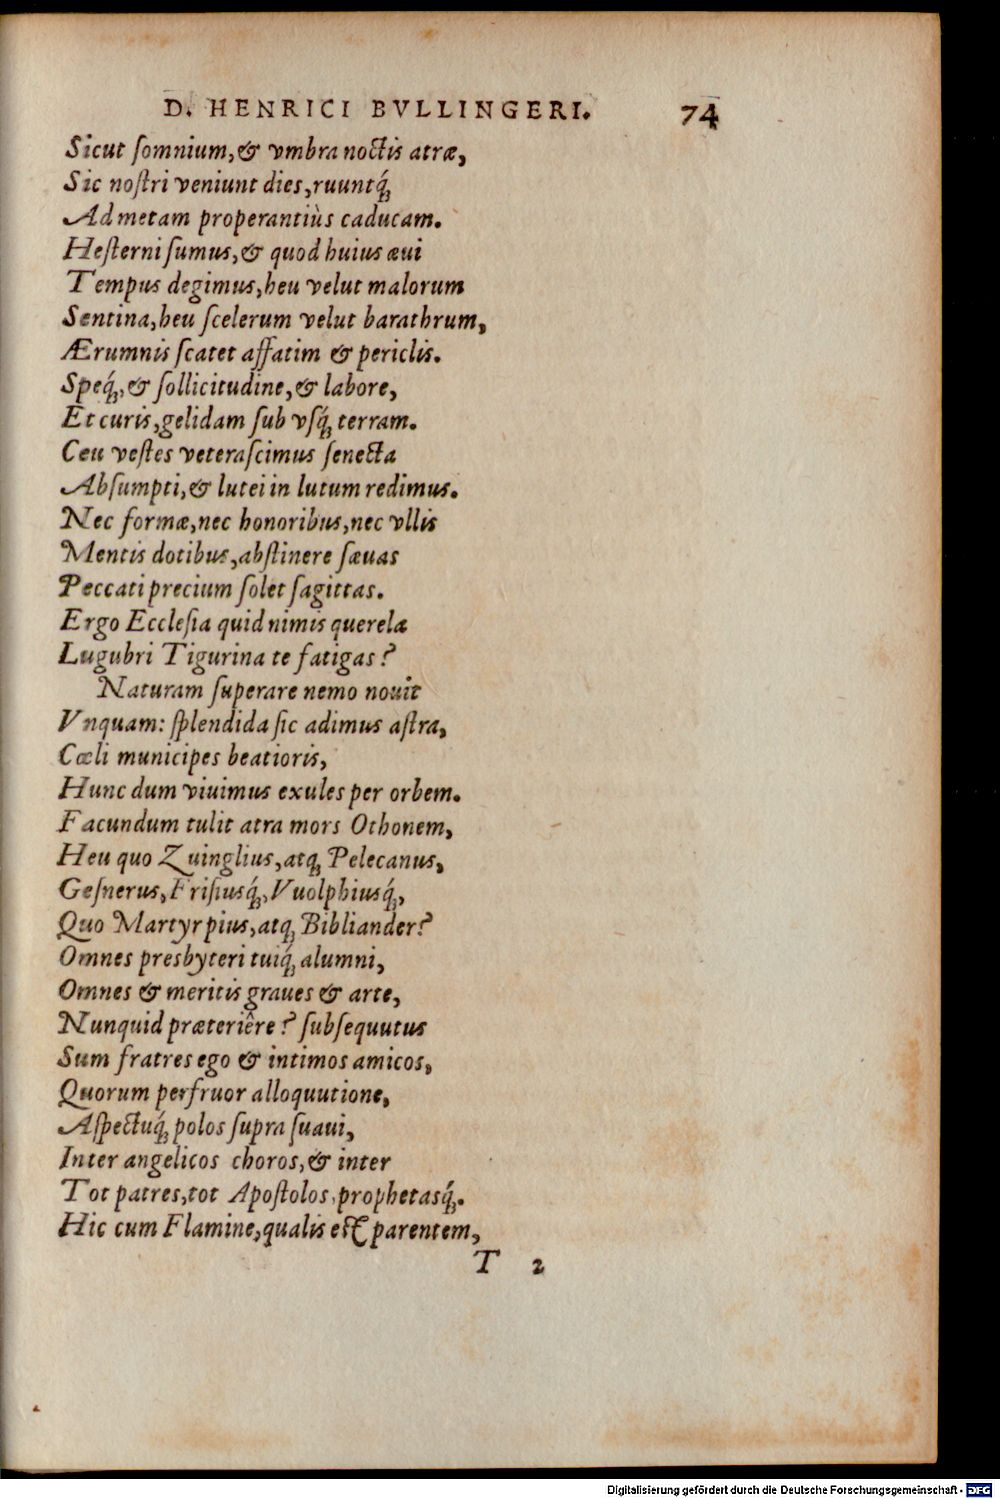 D. HENRICI BVLLINGERI. 74
Sicut ſomnium, & vmbra noctis atræ,
Sic noſtri veniunt dies, ruuntq́ꝫ
Ad metam properantiùs caducam.
Heſterni ſumus, & quod huius æui
Tempus degimus, heu velut malorum
Sentina, heu ſcelerum velut barathrum,
Ærumnis ſcatet affatim & periclis.
Speq́ꝫ, & ſollicitudine, & labore,
Et curis, gelidam ſub vſq́ꝫ terram.
Ceu veſtes veteraſcimus ſenecta
Abſumpti, & lutei in lutum redimus.
Nec formæ, nec honoribus, nec vllis
Mentis dotibus, abſtinere ſæuas
Peccati precium ſolet ſagittas.
Ergo Eccleſia quid nimis querela
Lugubri Tigurina te fatigas?
Naturam ſuperare nemo nouit
Vnquam: ſplendida ſic adimus aſtra,
Cœli municipes beatioris,
Hunc dum viuimus exules per orbem.
Facundum tulit atra mors Othonem,
Heu quo Zuinglius, atqꝫ Pelecanus,
Geſnerus, Friſiusq́ꝫ, Vuolphiusq́ꝫ,
Quo Martyr pius, atqꝫ Bibliander?
Omnes presbyteri tuiq́ꝫ alumni,
Omnes & meritis graues & arte,
Nunquid præteriêre? ſubſequutus
Sum fratres ego & intimos amicos,
Quorum perfruor alloquutione,
Aſpectuq́ꝫ polos ſupra ſuaui,
Inter angelicos choros, & inter
Tot patres, tot Apoſtolos, prophetasq́ꝫ.
Hic cum Flamine, qualis eſt parentem,
T 2
Digitalisierung gefördert durch die Deutsche Forschungsgemeinschaft - DFG